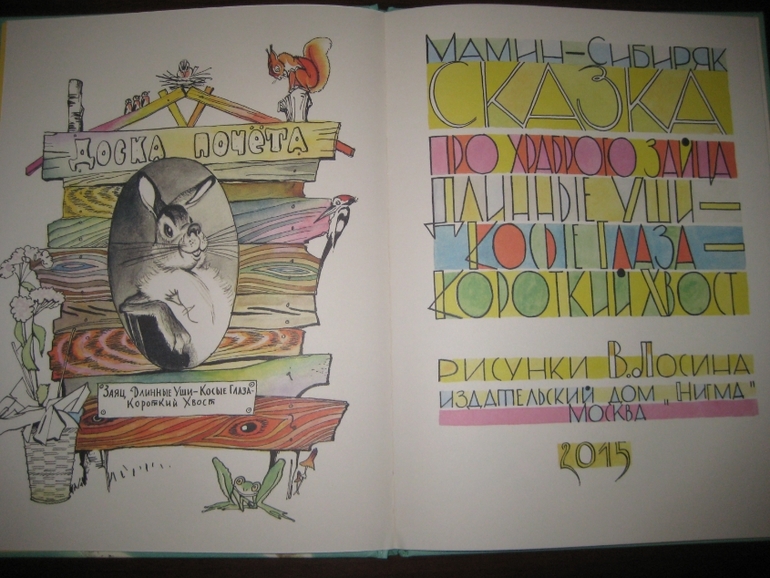 ДОСКА ПОЧЁТА
Заяц Длинные Уши-Косые Глаза-
Короткий Хвост
МАМИН-СИБИРЯК
СКАЗКА
ПРО ХРАБРОГО ЗАЙЦА
ДЛИННЫЕ УШИ-
КОСЫЕ ГЛАЗА-
КОРОТКИЙ ХВОСТ
РИСУНКИ В.ЛОСИНА
ИЗДАТЕЛЬСКИЙ ДОМ „НИГМА"
МОСКВА
2015